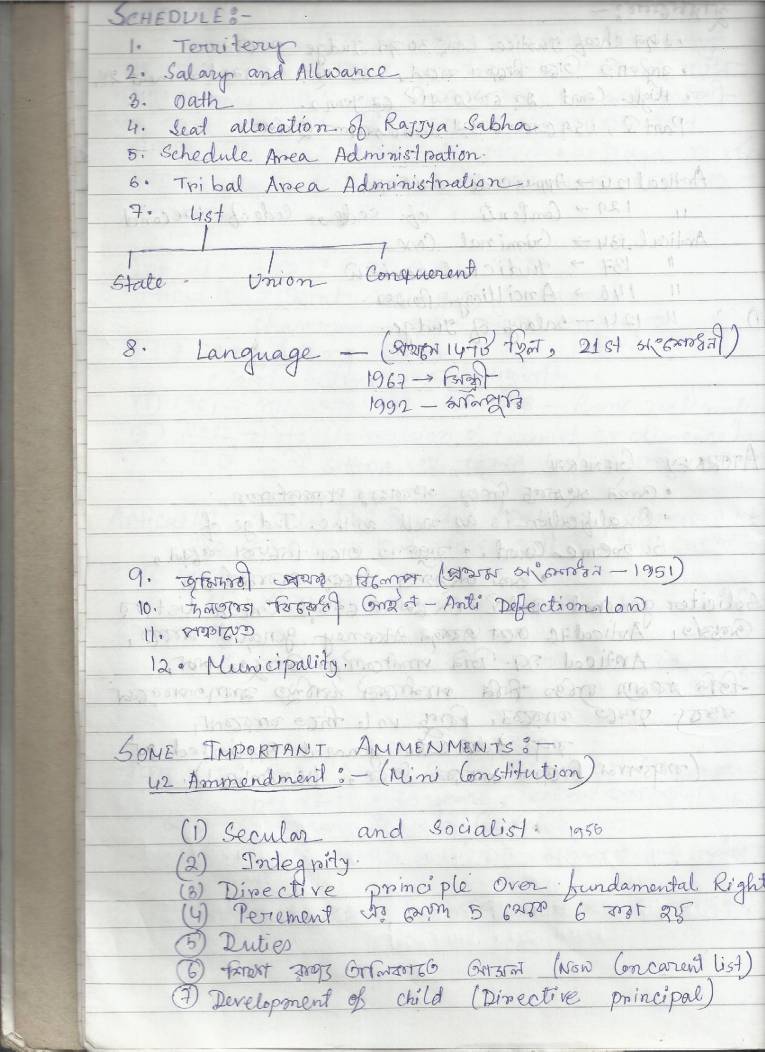 SCHEDULE:-
1. Territery
2. Salary and Allwance
3. Oath
4. Seat allocation of Rajjya Sabha
5. Schedule Area Administration.
6. Tribal Area Administration
7. List
State Union Conquerent
8. Language — (প্রথমে 14টি ছিল, 21st সংশোধনী)
1967 → সিন্ধ্রী
1992 — মনিপুরি
9. জমিদারী প্রথার বিলোপ (প্রথম সংশোধন – 1951)
10. দলত্যাগ বিরোধী আইন – Anti Defection law
11. পঞ্চায়েত
12. Municipality.
SOME IMPORTANT AMMENMENTS:—
42 Ammendment:— (Mini Constitution)
(1) Secular and Socialist. 1956
(2) Integrity.
(3) Directive principle Over fundamental Right
(4) Perement এর মেয়াদ 5 থেকে 6 করা হয়
(5) Duties
(6) শিক্ষা রাজ্য তালিকাতে আসল (Now Concarent list)
(7) Development of child (Directive principal)